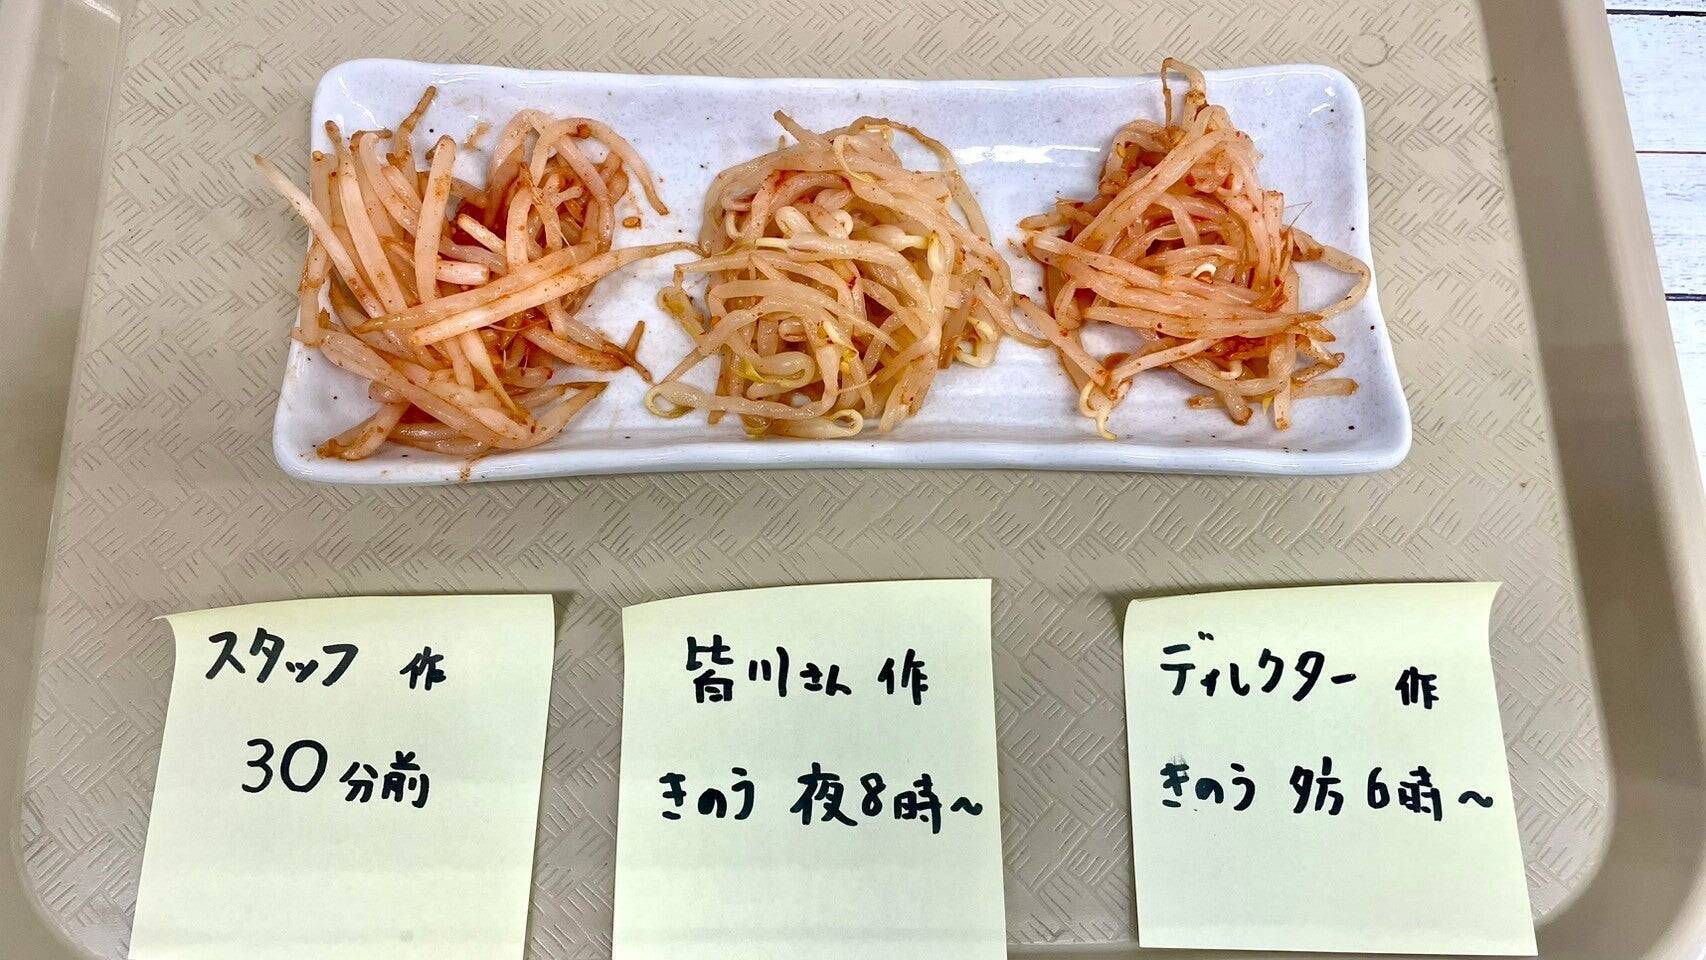 スタッフ 作
30分前
皆川さん 作
きのう 夜8時~
ディレクター 作
きのう 夕方6時~